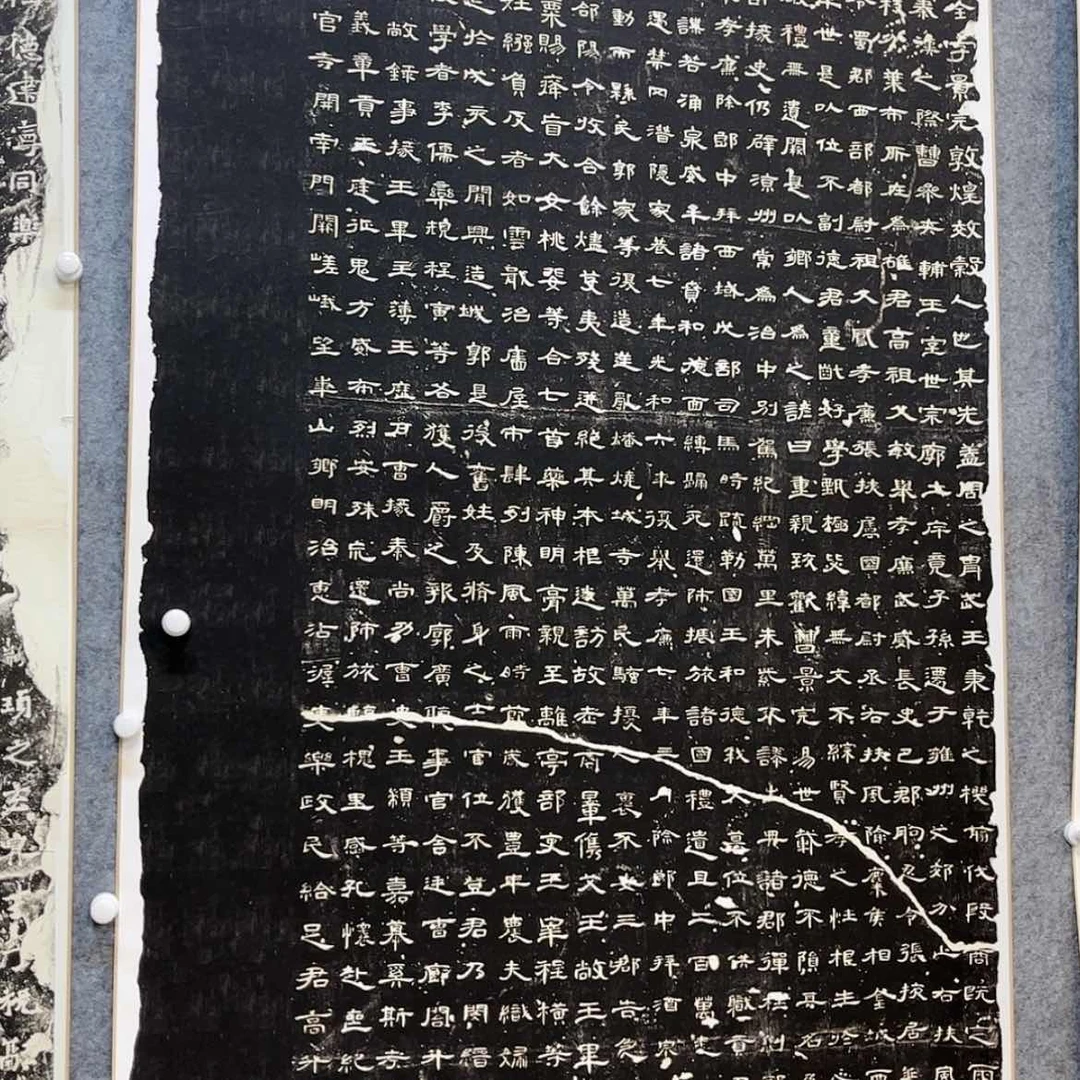 全字景完敦煌效穀人也其先蓋周之胄武王秉乾之機翦伐殷商既定爾
秦漢之際曹參夾輔王室世宗廓土斥竟子孫遷于雍州之郊分止右扶風
枝分葉布所在為雄君高祖父敏舉孝廉武威長史巴郡朐忍令張掖居延
令蜀郡西部都尉祖父鳳孝廉張掖屬國都尉丞右扶風隃麋侯相金城西
世是以位不副德君童齔好學甄極毖緯無文不綜賢孝之性根生於
敬禮無遺闕是以鄉人為之諺曰重親致歡曹景完易世載德不隕其名
部掾史仍辟涼州常為治中別駕紀綱萬里朱紫不謬出典諸郡彈枉糾邪
孝廉除郎中拜西域戊部司馬時疏勒國王和德弒父篡位不供職貢
謀若涌泉威牟諸賁和德面縛歸死還師振旅諸國禮遺且二百萬悉
遭禁冈潛隱家巷七年光和六年復舉孝廉七年三月除郎中拜酒泉
動而縣民郭家等復造逆亂燔燒城寺萬民騷擾人裹不安三郡告急
郃陽令收合餘燼芟夷殘迸絕其本根遂訪故老商量儁艾王敞王畢
粟賜癃盲大女桃婓等合七首藥神明膏親至離亭部吏王宰程橫等
姓繈負反者如雲戢治廧屋市肆列陳風雨時節歲獲豐年農夫織婦
之於戊亥之間興造城郭是後舊姓及脩身之士官位不登君乃閔縉
學者李儒欒規程寅等各獲人爵之報廓廣聽事官舍廷曹廊閤升
敞錄事掾王畢主簿王歷戶曹掾秦尚功曹史王顓等嘉慕奚斯考
義軍貢王庭征鬼方威布烈安殊荒還師旅臨槐里感孔懷赴喪紀
官寺開南門闕嵯峨望華山鄉明治惠沾渥吏樂政民給足君高升
德建寧同樂